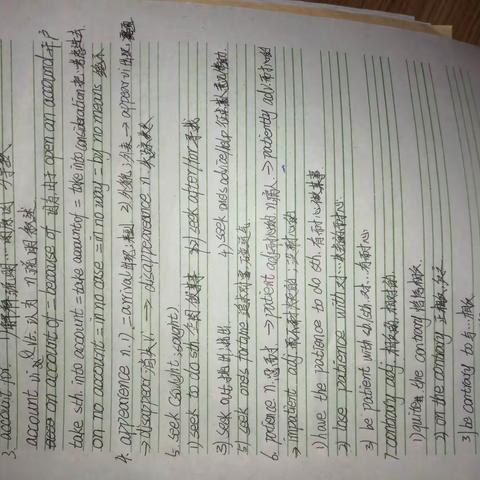 3. account for 1) 解释, 说明
account n. 说明, 叙述
on account of = because of 因为, 由于 open an account 开户
take sth. into account = take account of = take into consideration 把…考虑进去
on no account = in no case = in no way = by no means 绝不
4. appearence n. 1) = arrival 出现, 来到 2) 外貌, 外表 → appear vi 出现
→ disappear 消失 vi → disappearance n. 失踪
5. seek (sought, sought)
1) seek to do sth. 企图做某事 2) seek after/for 寻找
3) seek out 找出 4) seek one's advice/help
5) seek one's fortune
6. patience n. 忍耐 → patient adj 耐心的 n. 病人 → patiently adv. 耐心地
→ impatient adj 没耐心的
1) have the patience to do sth. 有耐心做某事
2) lose patience with 对…失去耐心
3) be patient with sb/sth. 对…有耐心
7. contrary adj. 相反的
1) quite the contrary 恰恰相反
2) on the contrary 正相反
3) be contrary to 与…相反